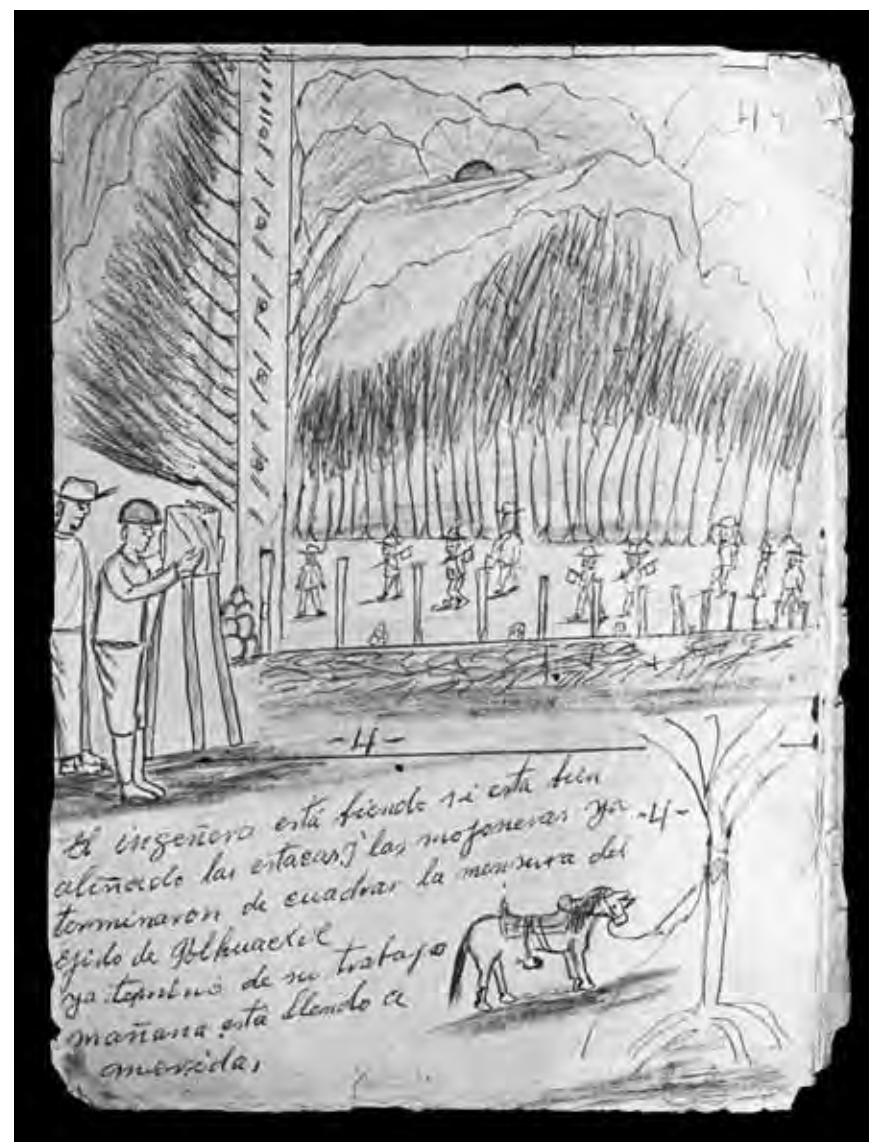 44
-4-
El ingeñero está biendo si esta bien
-4-
aliñado las estacas, y las mojoneras ya
terminaron de cuadrar la mensura del
Egido de Polhuacxil
ya termino de su trabajo
mañana esta llendo a
merida,